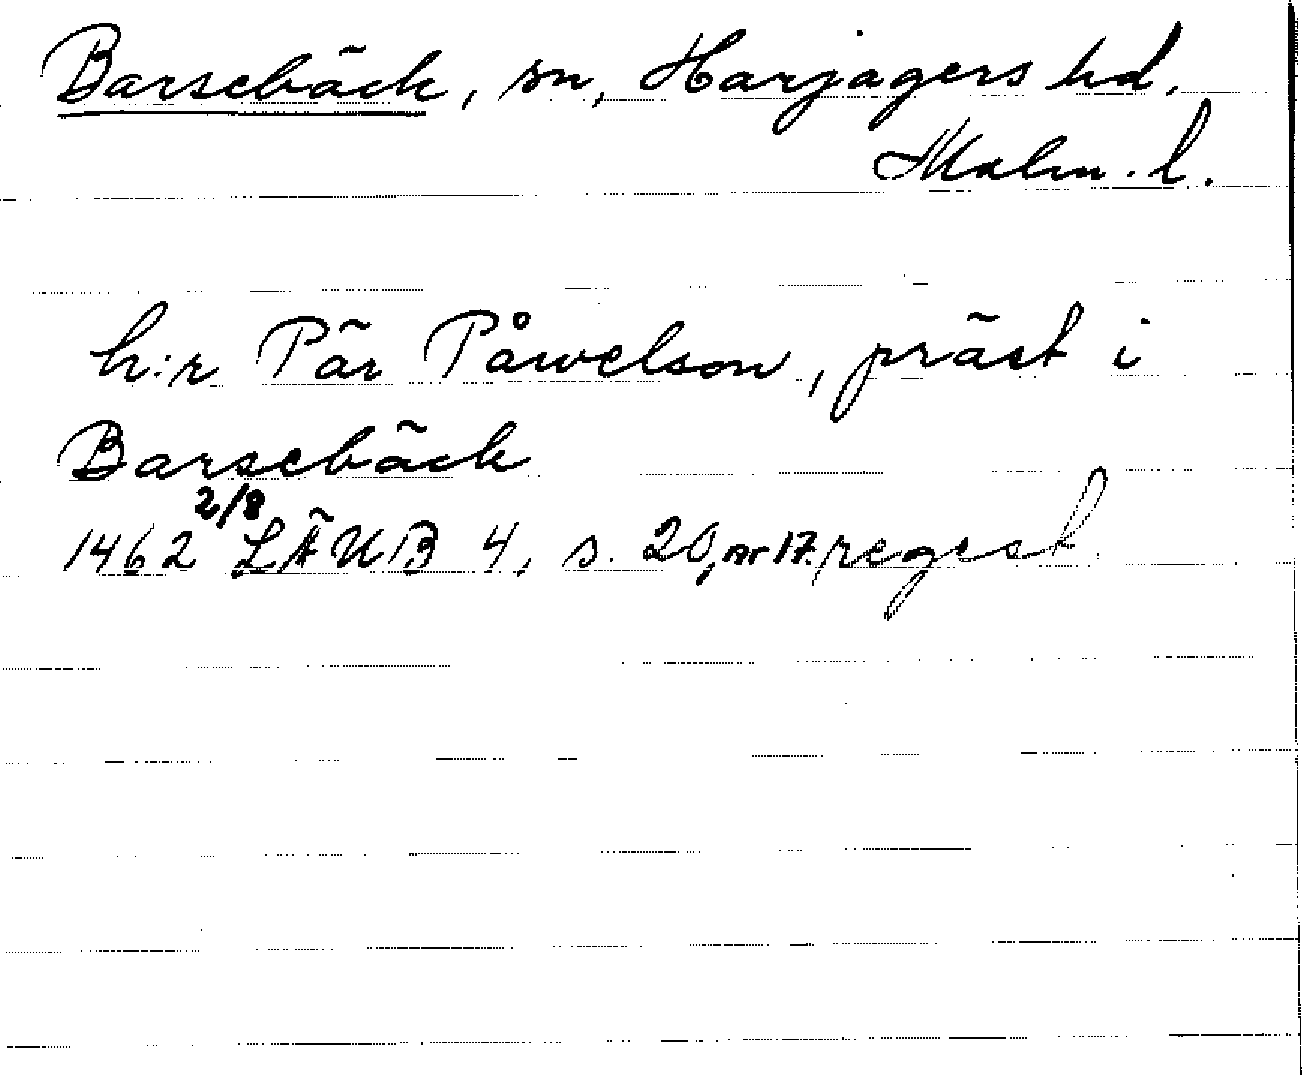 Barsebäck, sn, Harjagers hd.
Malm. l.
h:r Pär Påwelson, präst i
Barsebäck
1462 2/8 LÄUB 4, s. 20, nr 17. regest.